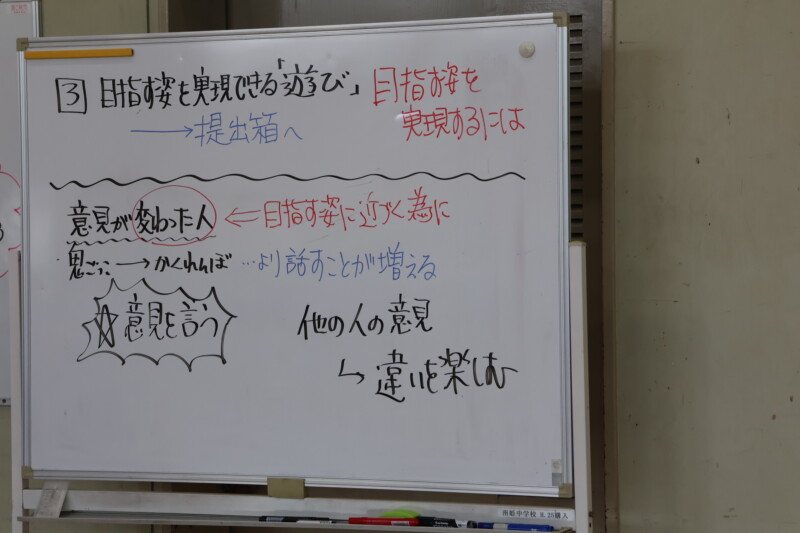 3 目指す姿を実現できる「遊び」
目指す姿を
実現するには
→提出箱へ
意見が変わった人 ⇐ 目指す姿に近づく為に
鬼ごっこ→かくれんぼ …より話すことが増える
☆意見を言う
他の人の意見
↳ 違いを楽しむ